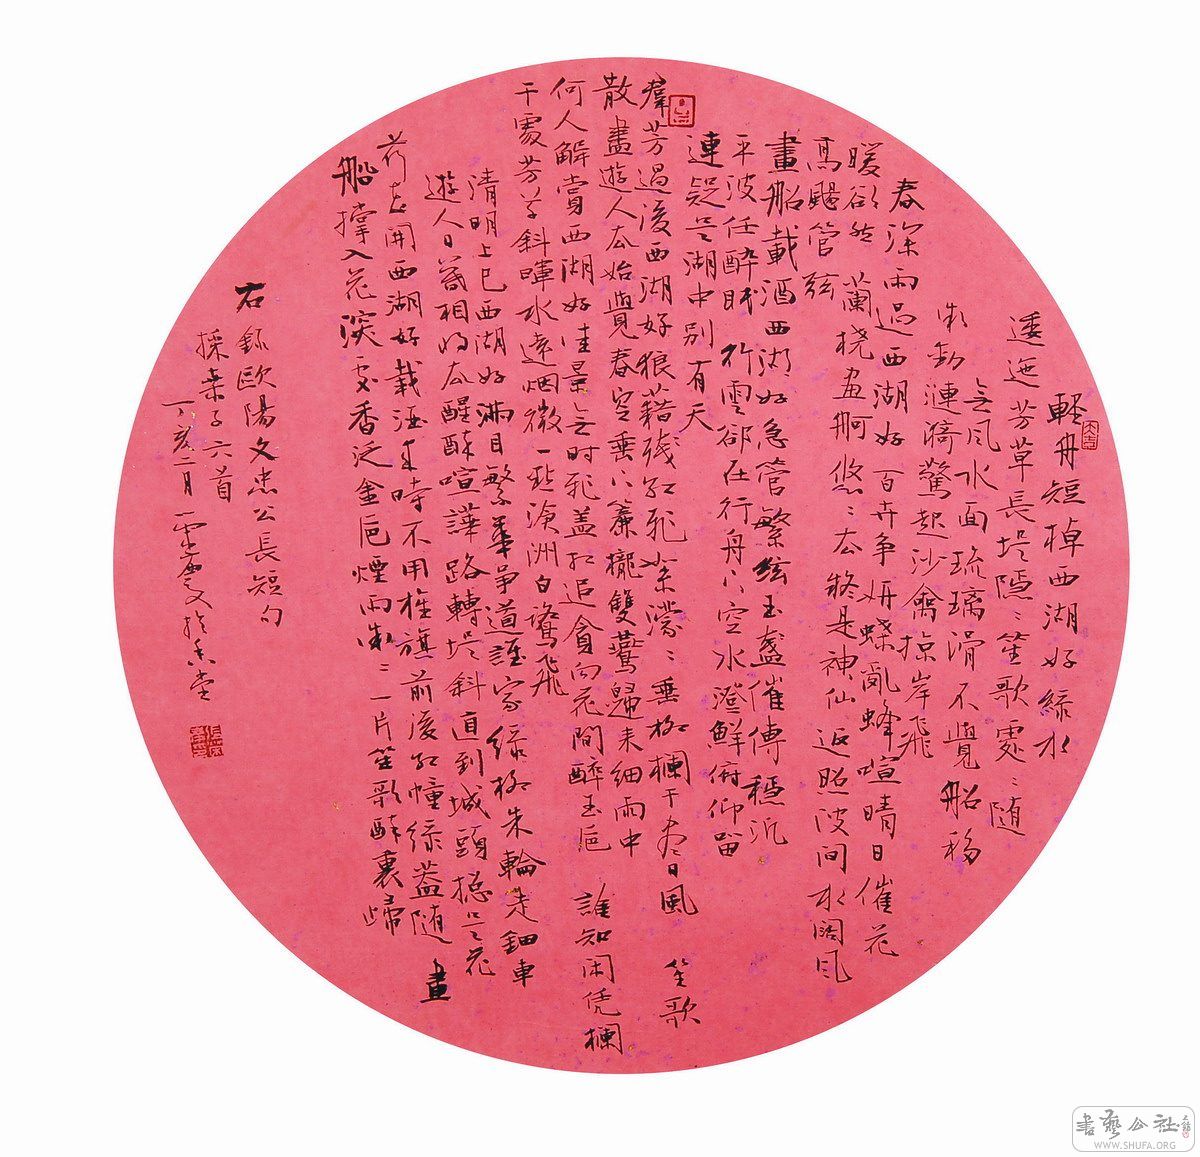 輕舟短棹西湖好綠水
逶迤芳草長堤隱〻笙歌處〻随
無风水面琉璃滑不覺船移
微動漣漪驚起沙禽掠岸飛
春深雨過西湖好百卉爭妍蝶亂蜂喧晴日催花
暖欲然 蘭橈畫舸悠〻去疑是神仙返照波间水阔风
高颺管弦
畫船載酒西湖好急管繁絃玉盞催傳穩汎
平波任醉眠 行雲卻在行舟下空水澄鮮俯仰留
連疑是湖中別有天
羣芳過後西湖好狼藉残红飛絮濛〻垂柳欄干尽日風 笙歌
散盡遊人去始覺春空垂下簾櫳雙鷰歸来细雨中
何人解賞西湖好佳景無时飛盖相追貪向花間醉玉巵 誰知闲凭欄
干處芳草斜暉水遠烟微一點滄洲白鷺飛
清明上巳西湖好滿目繁華爭道誰家綠柳朱輪走钿車
遊人日暮相將去醒醉喧譁路轉堤斜直到城頭總是花
荷花開西湖好載酒来時不用旌旗前後红幢綠蓋随 畫
船撑入花深處香泛金巵煙雨微〻一片笙歌醉裏歸
右錄歐陽文忠公長短句
採桑子六首
丁亥二月
書藝公社
WWW.SHUFA.ORG